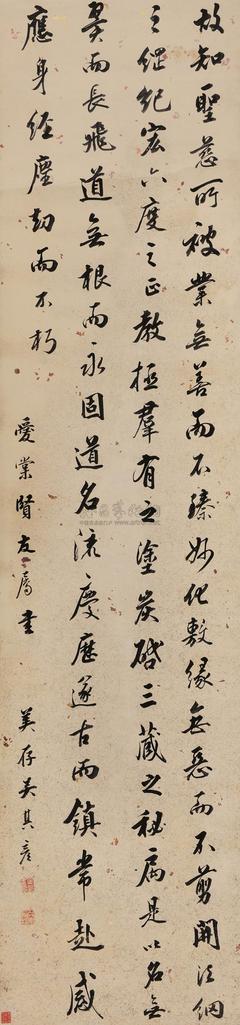 故知聖慈所被業無善而不臻妙化敷緣無惡而不剪開法綱
之綱紀宏六度之正教極羣有之塗炭啓三藏之秘扃是以名無
翼而長飛道無根而永固道名流慶歷遂古而鎮常赴感
應身經塵劫而不朽
愛棠賢友屬書
美存吳其彥